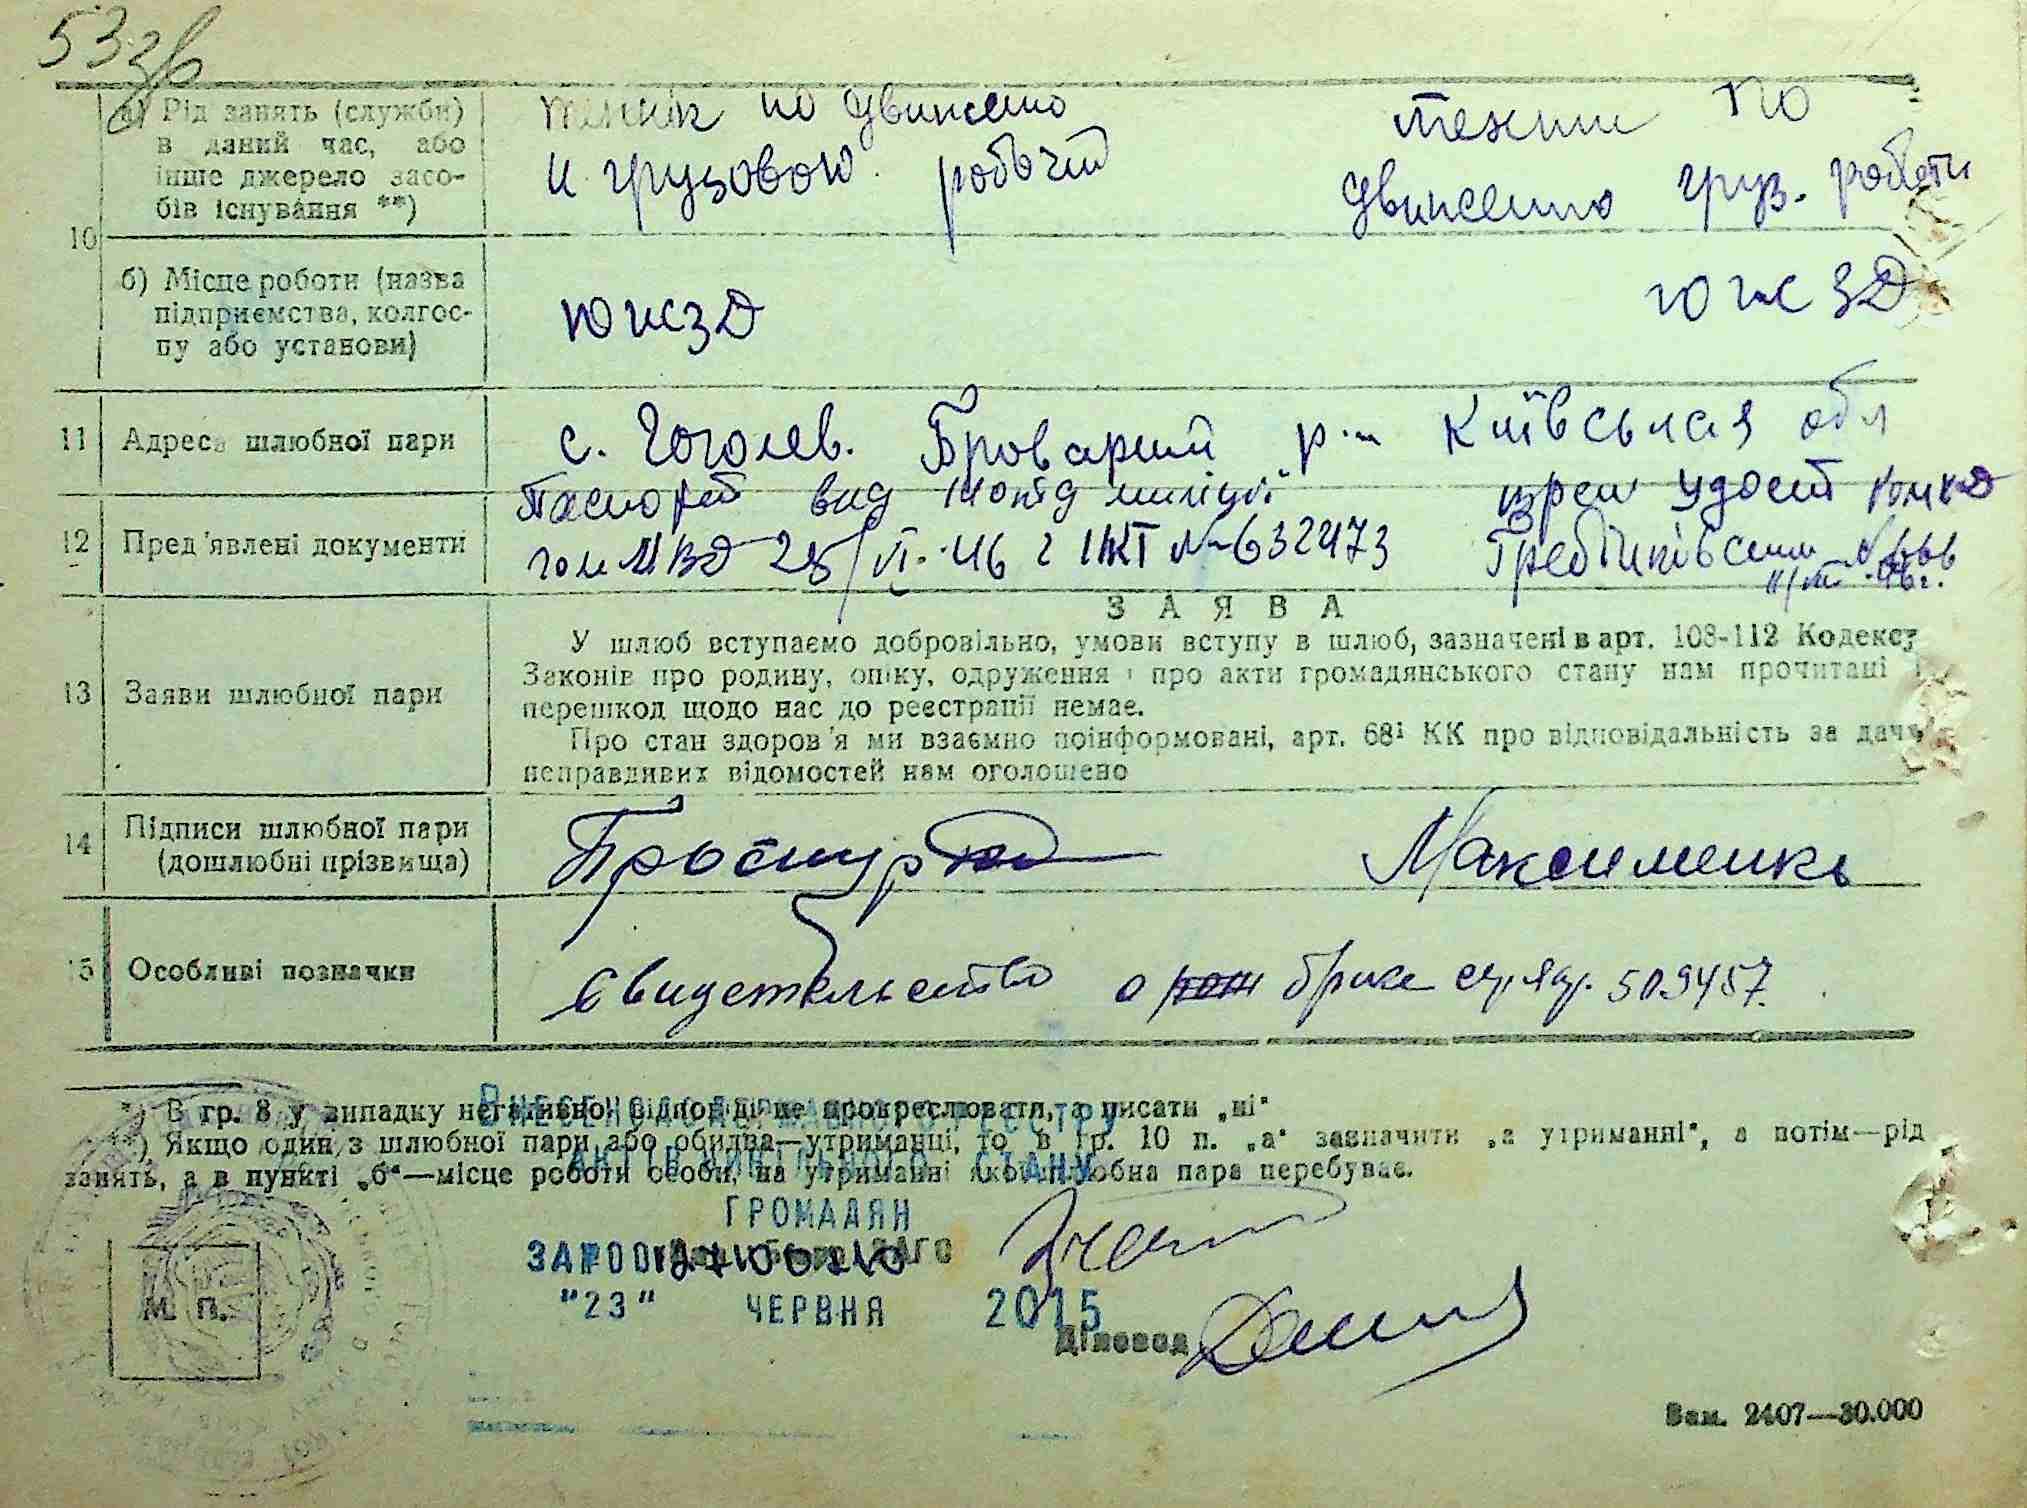 53
а) Рід занять (служби) в даний час, або інше джерело засобів існування **)
технік по движению
и грузовою робочий
техник по
движению груз. роботи
10
б) Місце роботи (назва підприємства, колгоспу або установи)
ЮЖЗД
ЮЖЗД
11 Адреса шлюбної пари
с. Гоголев. Броварский р-н Київськая обл
12 Пред'явлені документи
Паспорт вид міліції
МВД 28/VI-46 г ІІЖТ №632473
удост
13 Заяви шлюбної пари
ЗАЯВА
У шлюб вступаємо добровільно, умови вступу в шлюб, зазначені в арт. 108-112 Кодексу
Законів про родину, опіку, одруження і про акти громадянського стану нам прочитані і
перешкод щодо нас до реєстрації немає.
Про стан здоров'я ми взаємно поінформовані, арт. 68¹ КК про відповідальність за дачу
неправдивих відомостей нам оголошено
14 Підписи шлюбної пари (дошлюбні прізвища)
Максименко
15 Особливі позначки
Свидетельство о браке 509457.
*) В гр. 8 у випадку негативної відповіді не прокреслювати, а писати „ні"
**) Якщо один з шлюбної пари або обидва—утриманці, то в гр. 10 п. „а" зазначити „а утриманні", а потім—рід
занять, а в пункті „б"—місце роботи особи, на утриманні якої шлюбна пара перебуває.
ВНЕСЕНО ДО ДЕРЖАВНОГО РЕЄСТРУ
АКТІВ ЦИВІЛЬНОГО СТАНУ
ГРОМАДЯН
ЗАГС
"23" ЧЕРВНЯ 2015
М. П.
Діловод
Зам. 2407—30.000